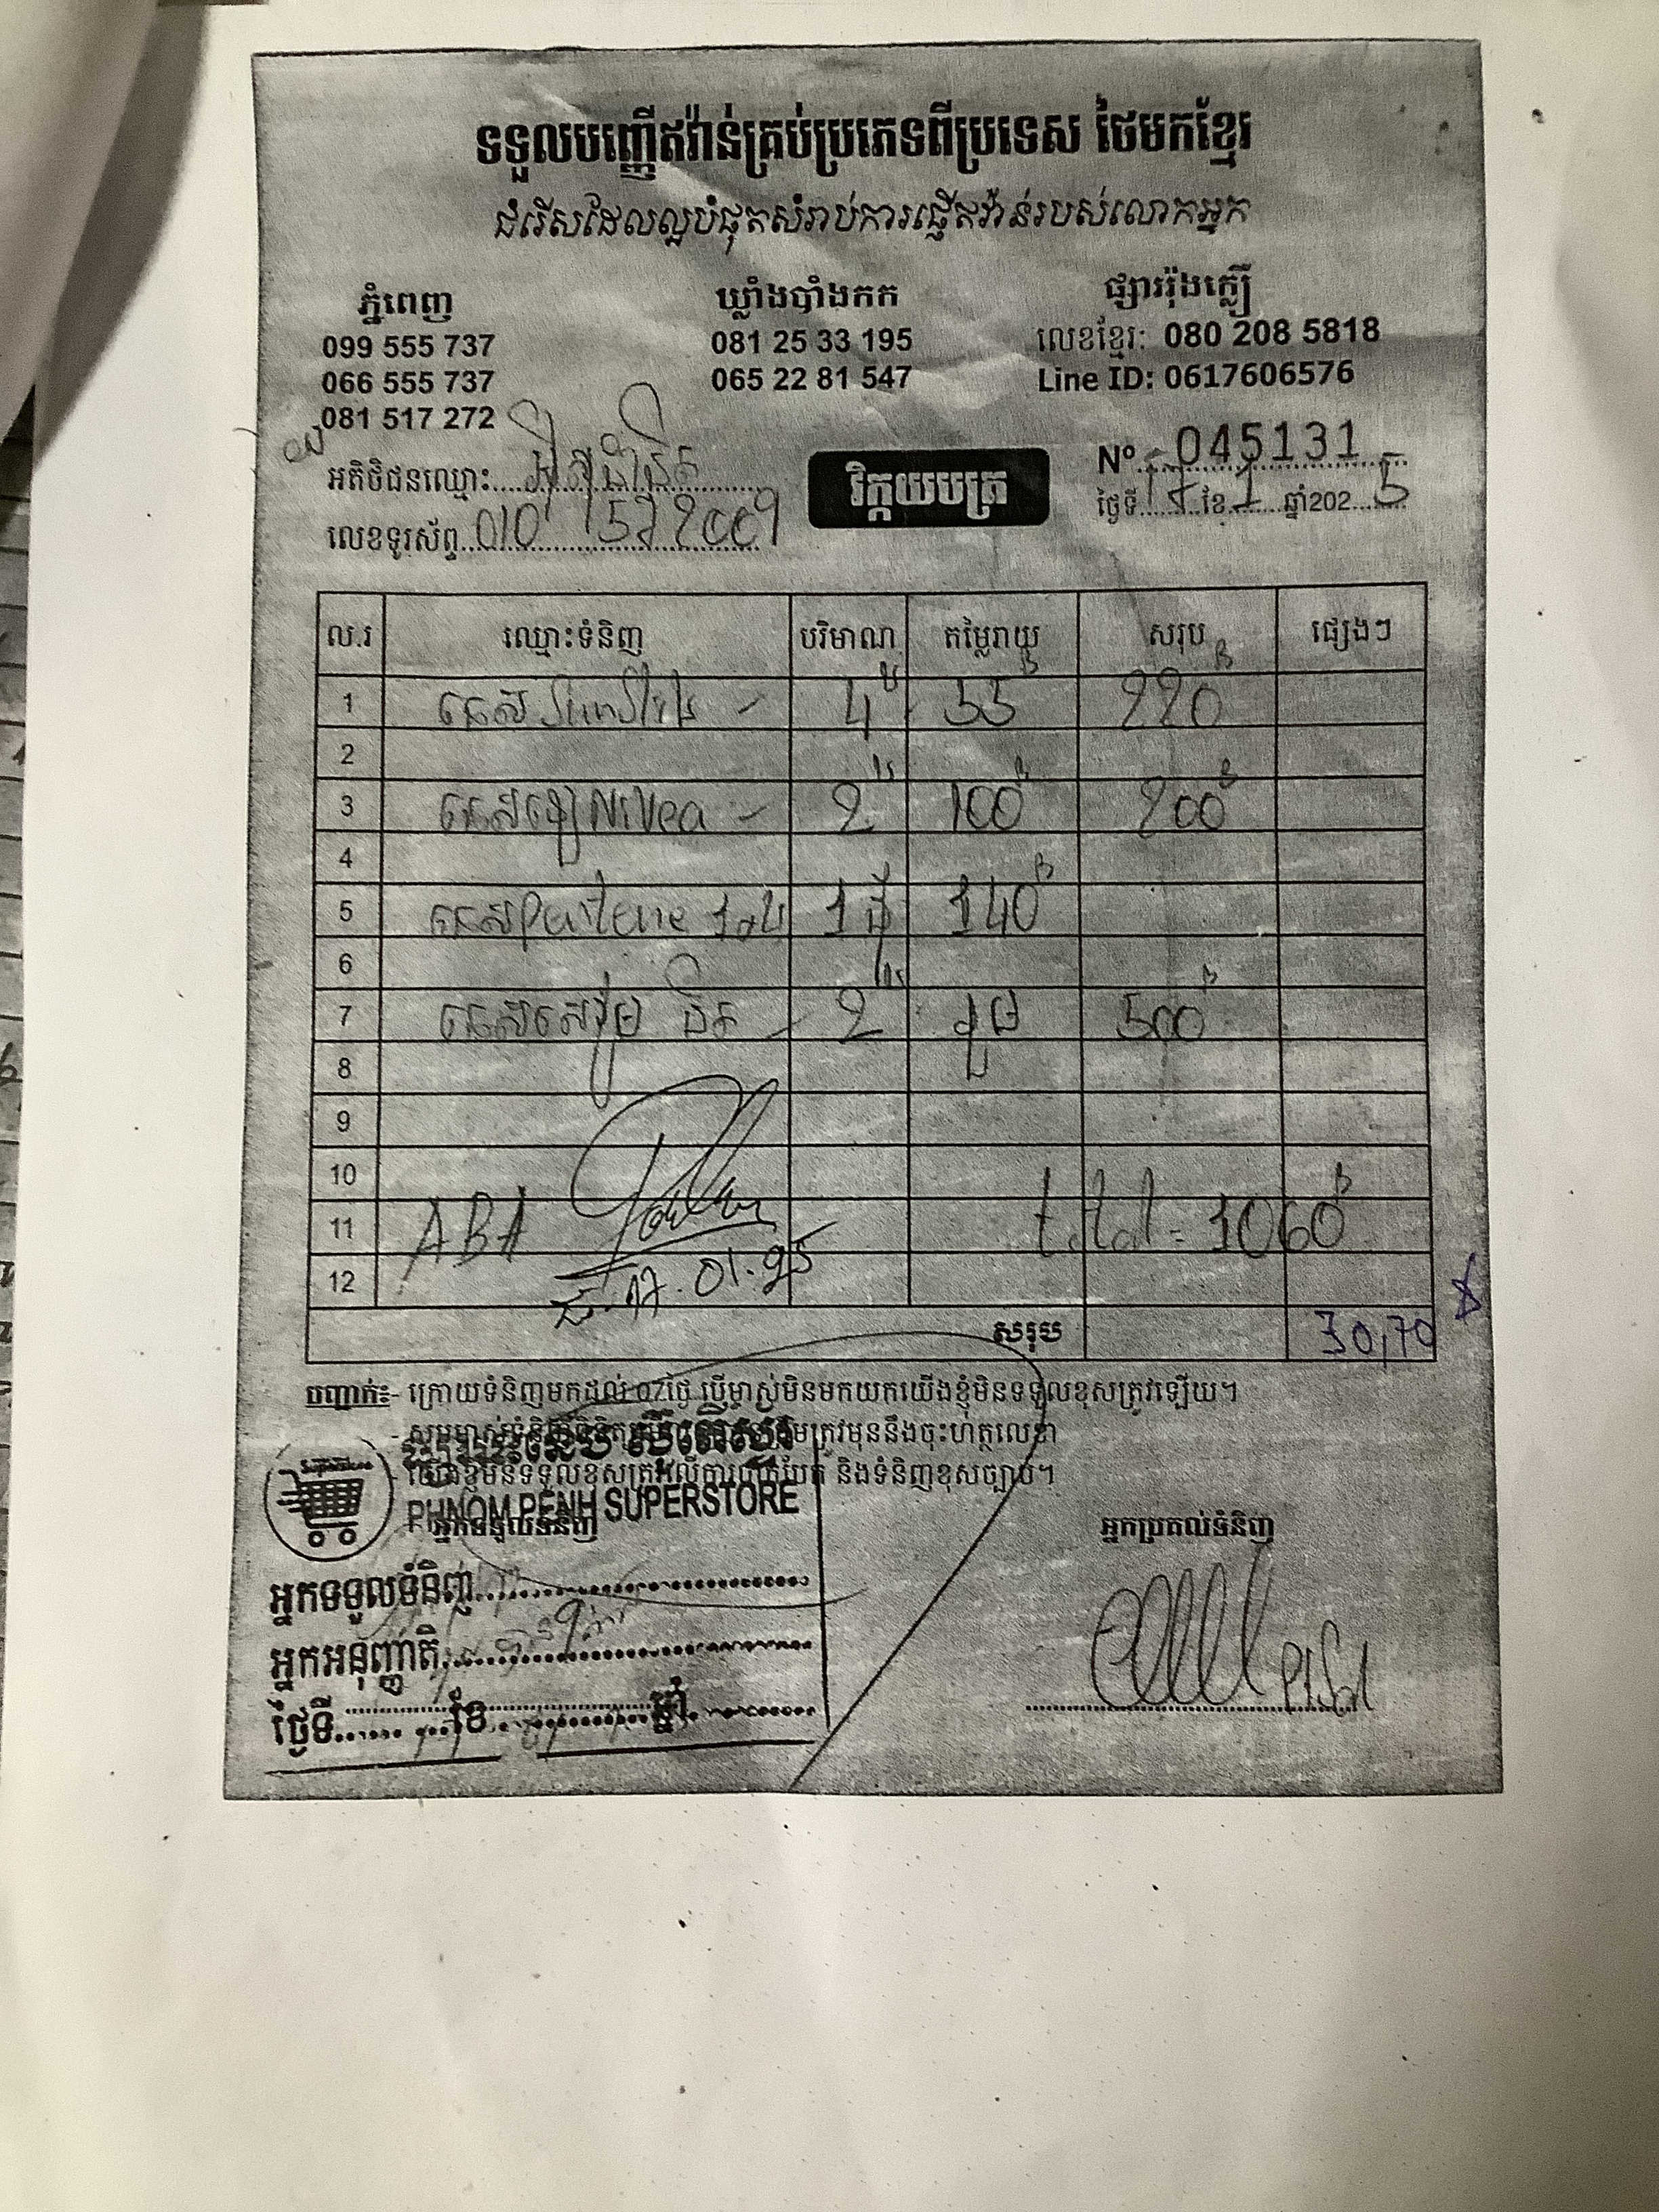 ទទួលបញ្ញើឥវ៉ាន់គ្រប់ប្រភេទពីប្រទេស ថៃមកខ្មែរ
ជំរើសដែលល្អបំផុតសំរាប់ការផ្ញើឥវ៉ាន់របស់លោកអ្នក
ភ្នំពេញ
099 555 737
066 555 737
081 517 272
ឃ្លាំងបាំងកក
081 25 33 195
065 22 81 547
ផ្សាររ៉ុងក្លឿ
លេខខ្មែរ: 080 208 5818
Line ID: 0617606576
អតិថិជនឈ្មោះ
លេខទូរស័ព្ទ 010 1572009
វិក្កយបត្រ
Nº 045131
ថ្ងៃទី 17 ខែ 1 ឆ្នាំ202 5
ល.រ ឈ្មោះទំនិញ បរិមាណ តម្លៃរាយ សរុប ផ្សេងៗ
1 4 55 B 220 B
2
3 Nivea 2 100 B 200 B
4
5 Pantene 1 140 B
6
7 2 500 B
8
9
10
11 ABA total = 1060 B
12 17.01.25
សរុប 30,70 $
បញ្ជាក់៖- ក្រោយទំនិញមកដល់ 07ថ្ងៃ បើម្ចាស់មិនមកយកយើងខ្ញុំមិនទទួលខុសត្រូវឡើយ។
ត្រូវមុននឹងចុះហត្ថលេខា
និងទំនិញខុសច្បាប់។
PHNOM PENH SUPERSTORE
អ្នកទទួលទំនិញ
អ្នកប្រគល់ទំនិញ
អ្នកទទួលទំនិញ
អ្នកអនុញ្ញាតិ
ថ្ងៃទី ខែ ឆ្នាំ